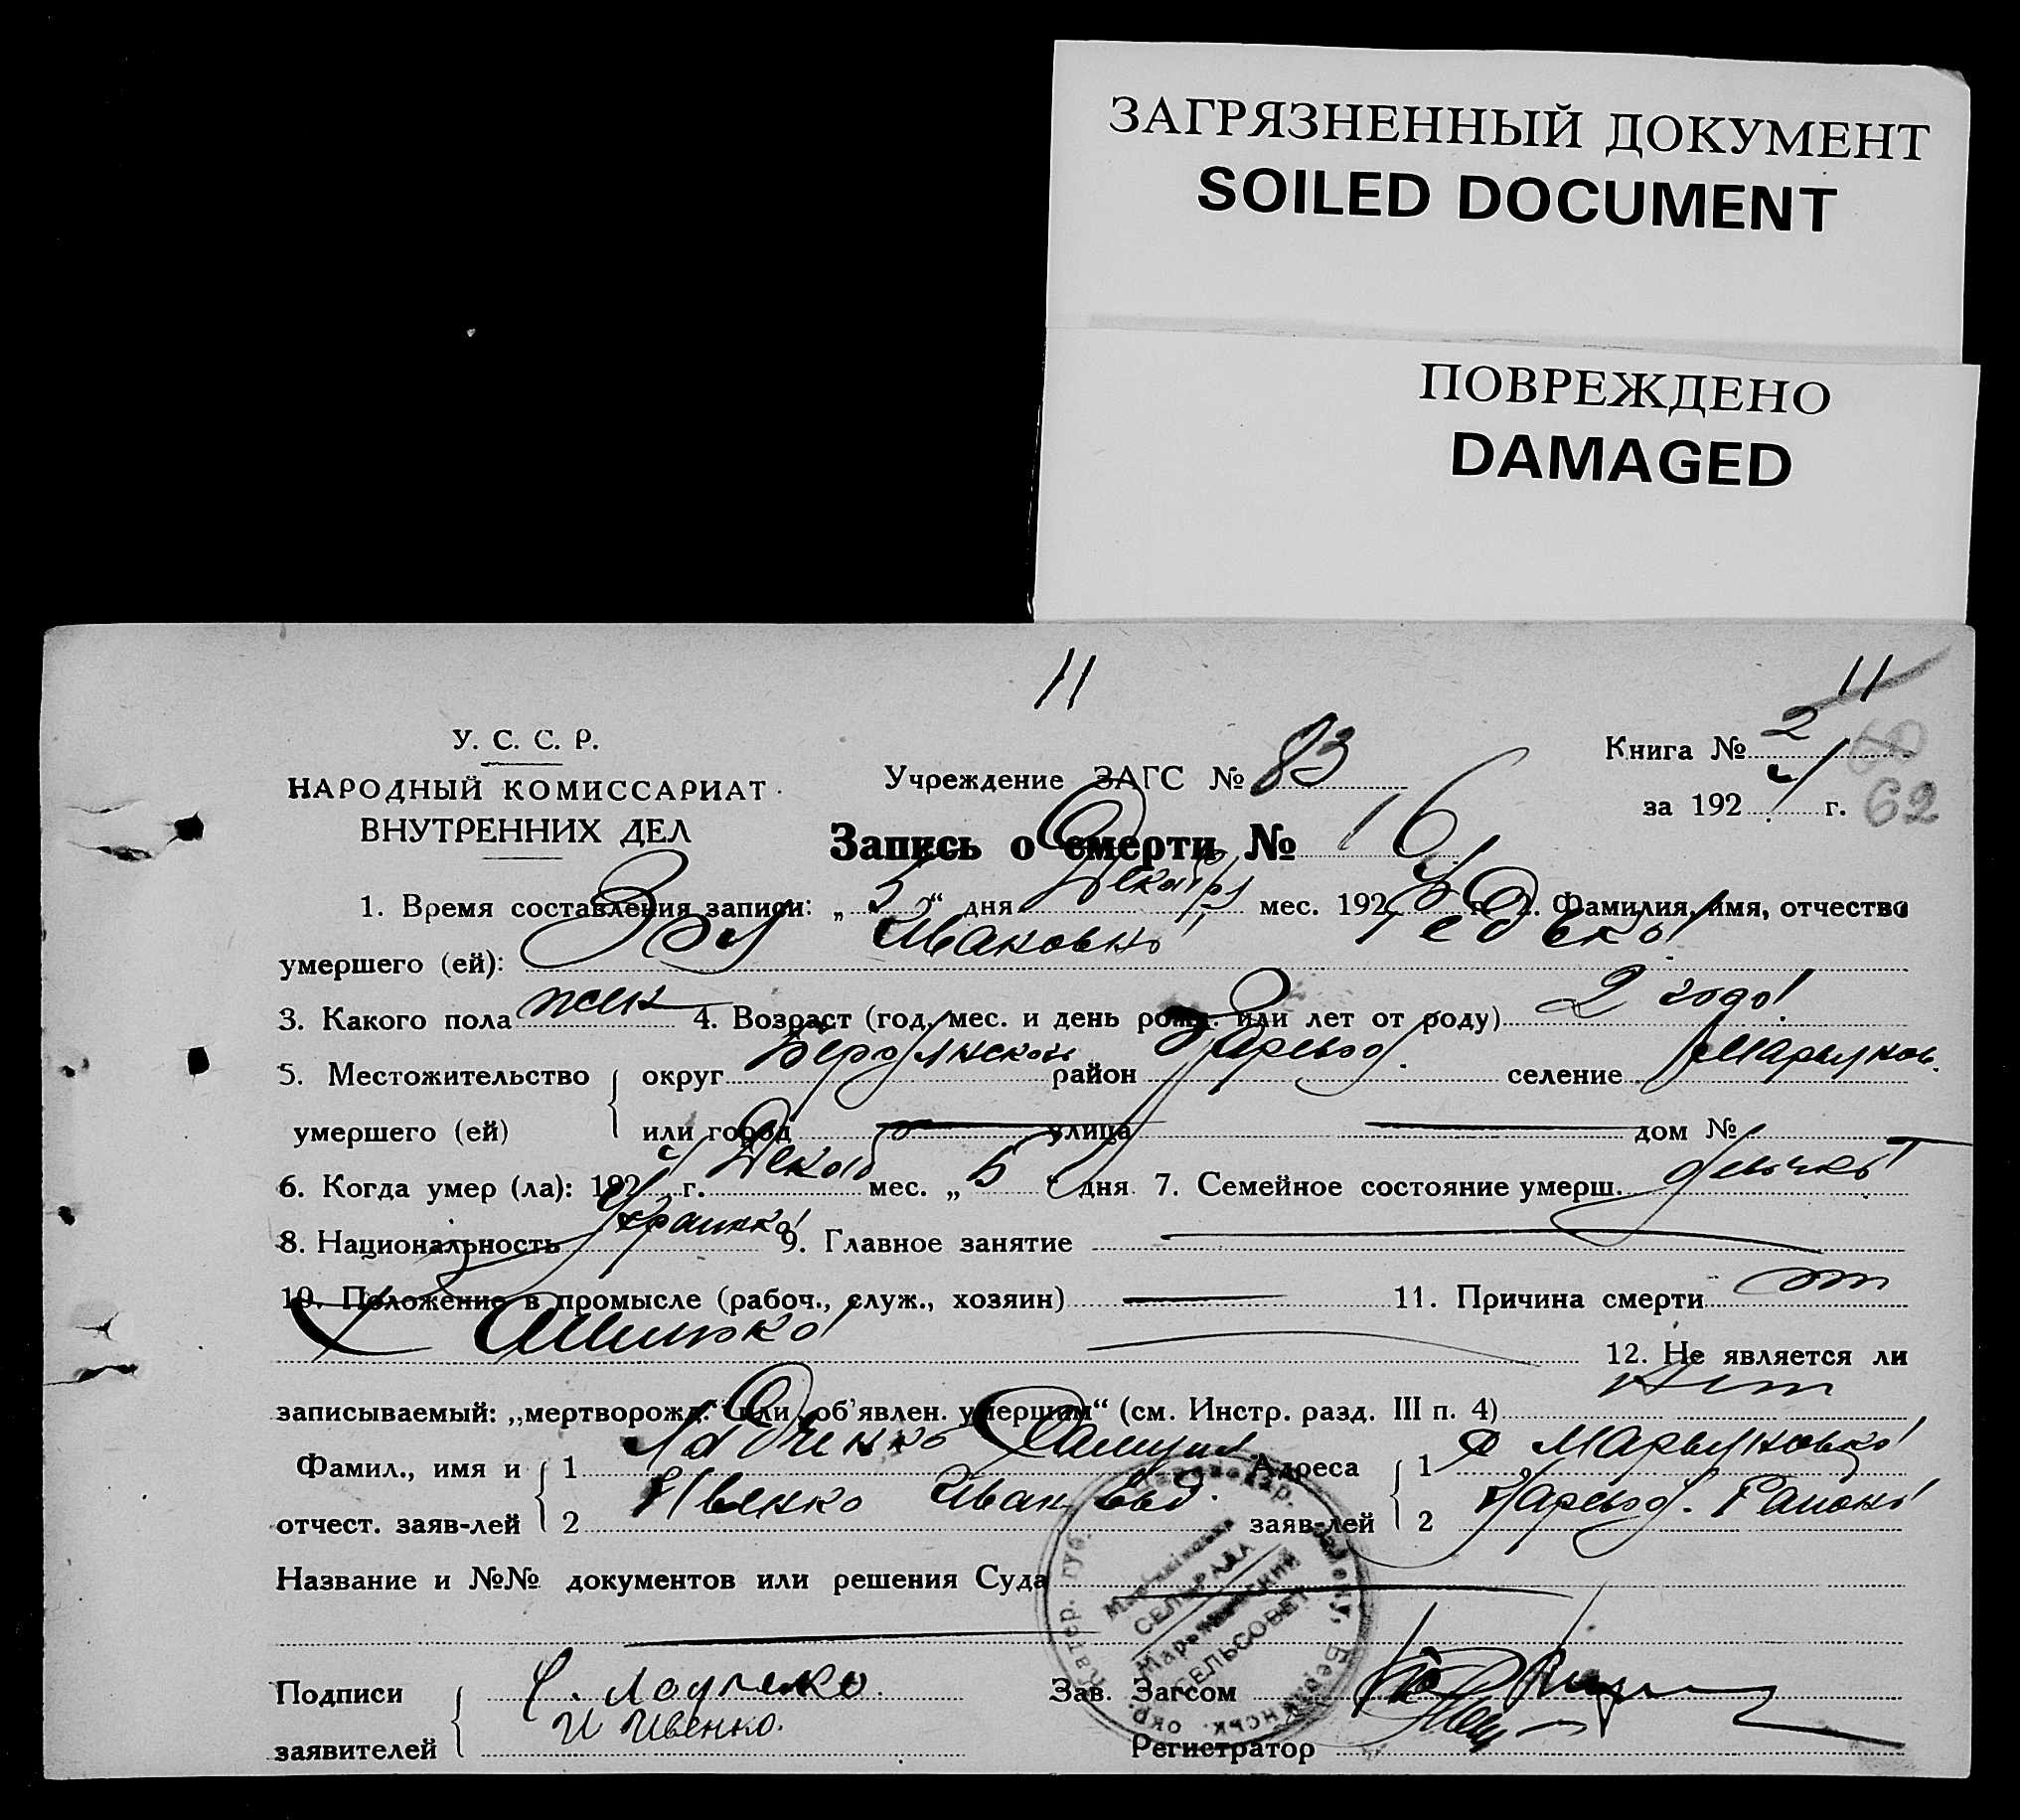 ЗАГРЯЗНЕННЫЙ ДОКУМЕНТ
SOILED DOCUMENT
ПОВРЕЖДЕНО
DAMAGED
11
11
У. С. С. Р.
НАРОДНЫЙ КОМИССАРИАТ
ВНУТРЕННИХ ДЕЛ
Учреждение ЗАГС № 83
Книга № 2
за 1924 г.
62
Запись о смерти № 16
1. Время составления записи: „5“ дня Декабря мес. 1924 г. 2. Фамилия, имя, отчество
умершего (ей): Ивановна
3. Какого пола жен 4. Возраст (год, мес. и день рожд. или лет от роду) 2 года
5. Местожительство округ район Царевод. селение Марьянов.
умершего (ей) или город — улица — дом № —
6. Когда умер (ла): 1924 г. Декаб мес. „5“ дня 7. Семейное состояние умерш. девочка
8. Национальность Украинка 9. Главное занятие —
10. Положение в промысле (рабоч., служ., хозяин) — 11. Причина смерти от
12. Не является ли
записываемый: „мертворожд.“ или „об'явлен. умершим“ (см. Инстр. разд. III п. 4) нет
Фамил., имя и 1 Ладченко Адреса 1 Марьяновка
отчест. заяв-лей 2 Ивенко Иван заяв-лей 2 Царевод. Района
Название и №№ документов или решения Суда —
СЕЛЬРАДА
СЕЛЬСОВЕТ
Подписи
Зав. Загсом
И Ивенко.
заявителей
Регистратор